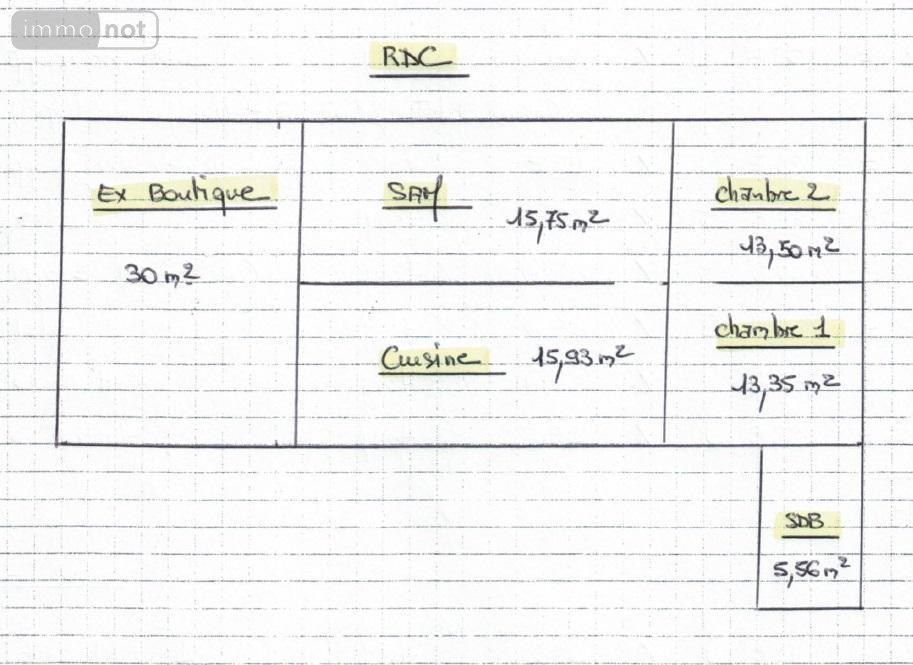 immo not
RDC
Ex Boutique
30 m²
SAM
15,75 m²
chambre 2
13,50 m²
Cuisine
15,93 m²
chambre 1
13,35 m²
SDB
5,56 m²